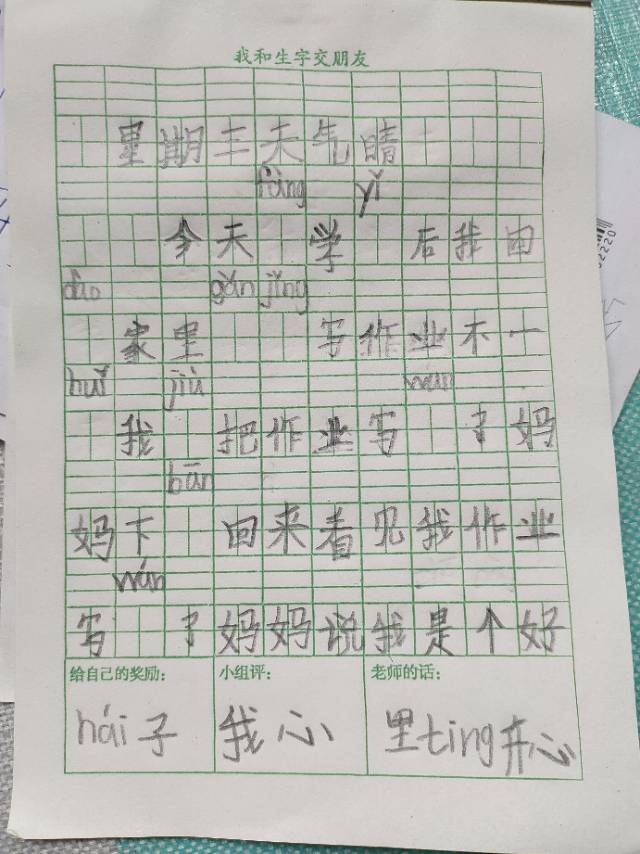 我和生字交朋友
星期三天气晴
fàng yǐ
今天 学 后我回
dào gǎn jǐng
家里 写作业不一
huǐ jiù wan
我 把作业写 了妈
bān
妈下 回来看见我作业
wán
写 了妈妈说我是个好
给自己的奖励: 小组评: 老师的话:
hái子 我心 里ting开心